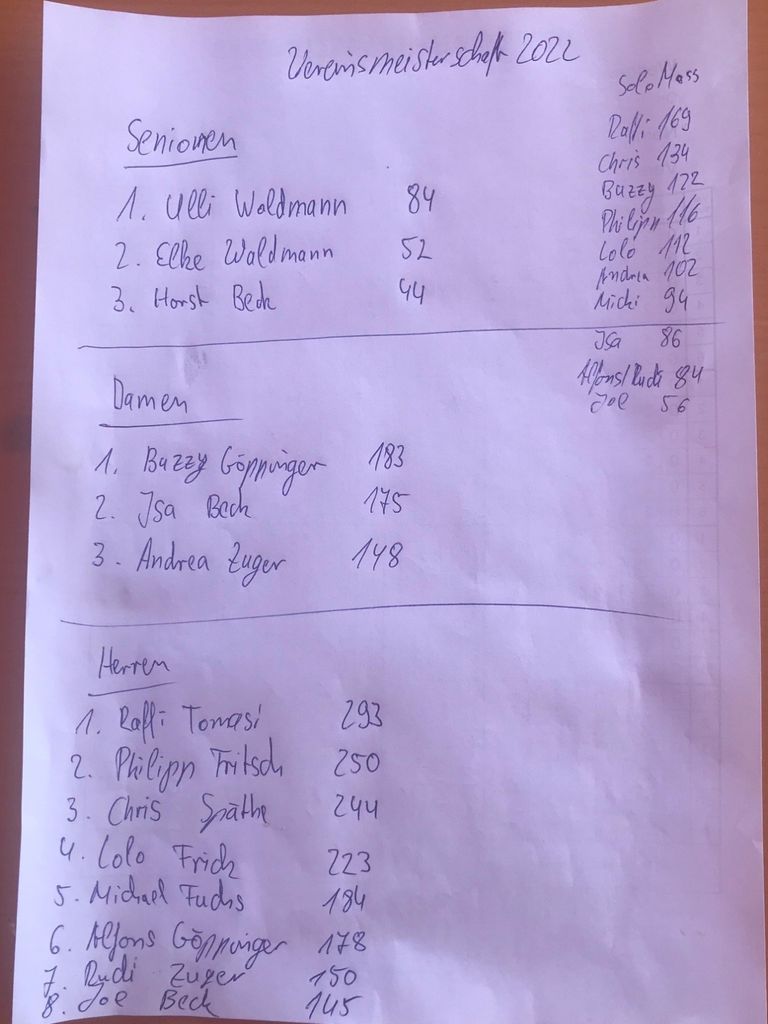 Vereinsmeisterschaft 2022
Senioren
1. Ulli Waldmann 84
2. Elke Waldmann 52
3. Horst Beck 44
Damen
1. Buzzy Göppinger 183
2. Isa Beck 175
3. Andrea Zuger 148
Herren
1. Raffi Tomasi 293
2. Philipp Fritsch 250
3. Chris Späthe 244
4. Lolo Frick 223
5. Michael Fuchs 184
6. Alfons Göppinger 178
7. Rudi Zuger 150
8. Joe Beck 145
Solo Mass
Raffi 169
Chris 134
Buzzy 122
Philipp 116
Lolo 112
Andrea 102
Michi 94
Isa 86
Alfons/Rudi 84
Joe 56